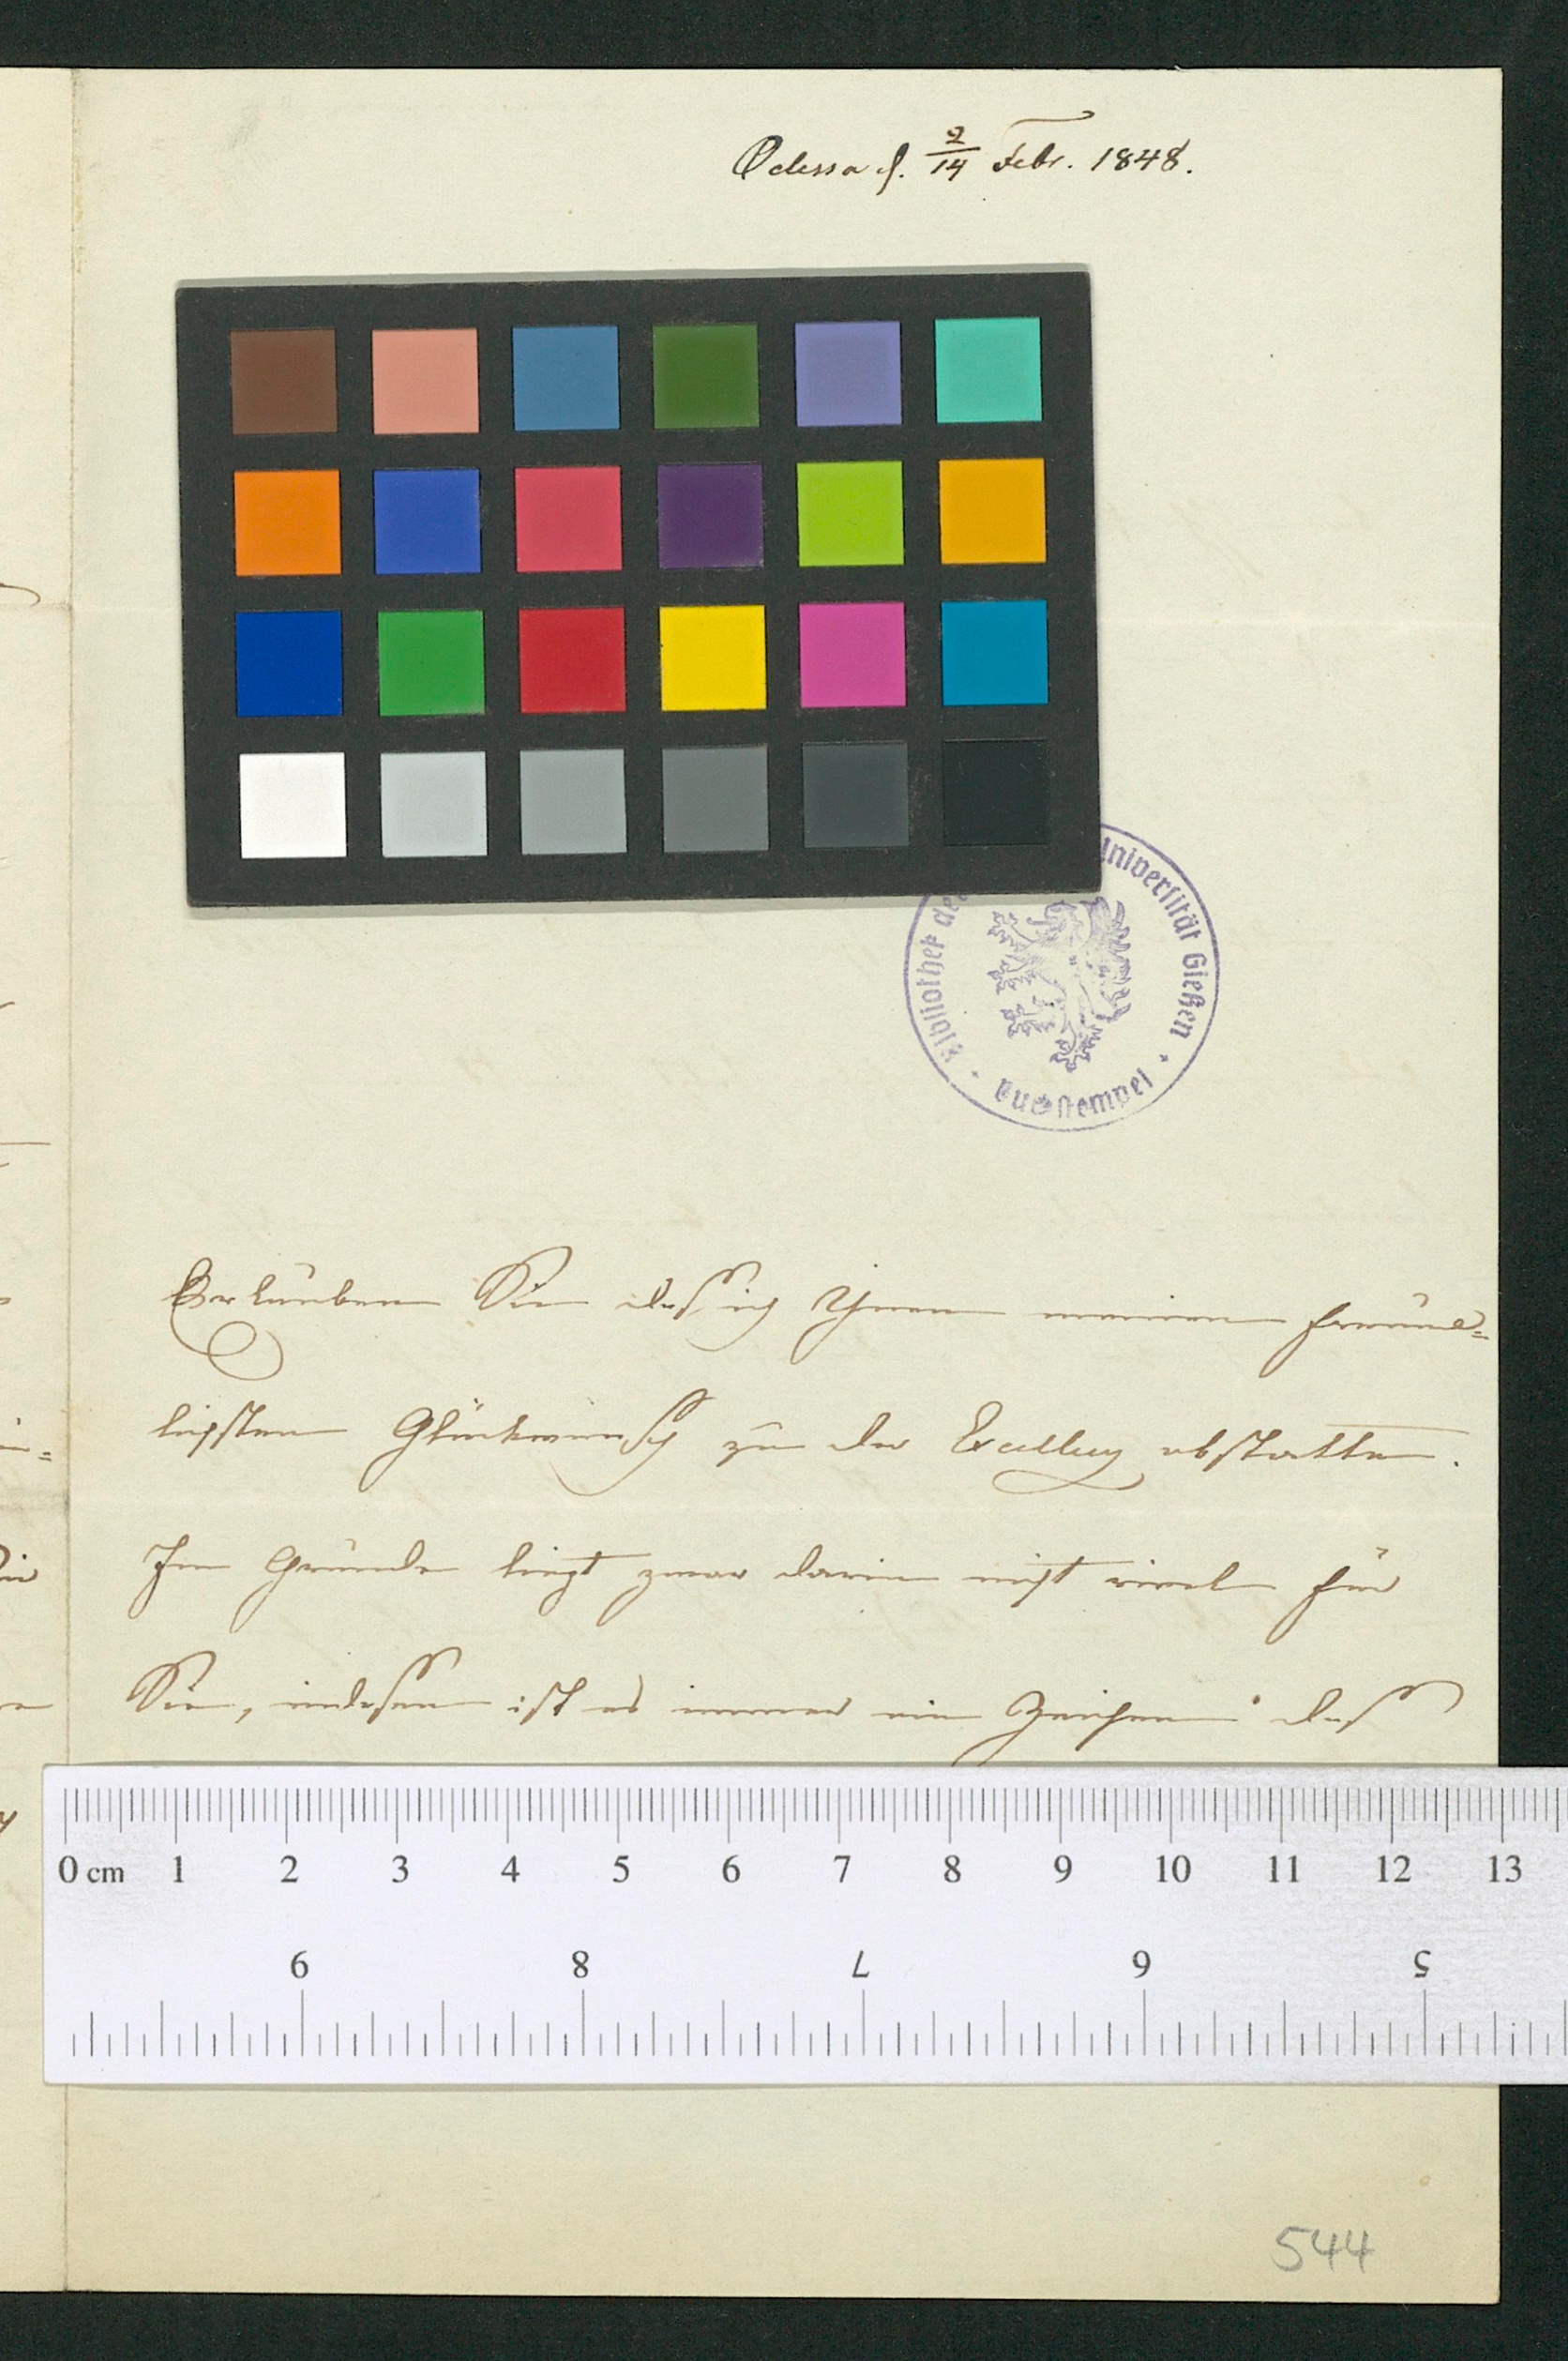 Odessa d. 2/14 Febr. 1848.
Bibliothek der Universität Gießen
Buchstempel
Erlauben Sie daß ich Ihnen meinen freund=
lichsten Glückwunsch zu der Excellenz abstatten.
Im Grunde liegt zwar darin nicht viel für
Sie, indessen ist es immer ein Zeichen daß
0 cm 1 2 3 4 5 6 7 8 9 10 11 12 13
9 8 7 6 5
544